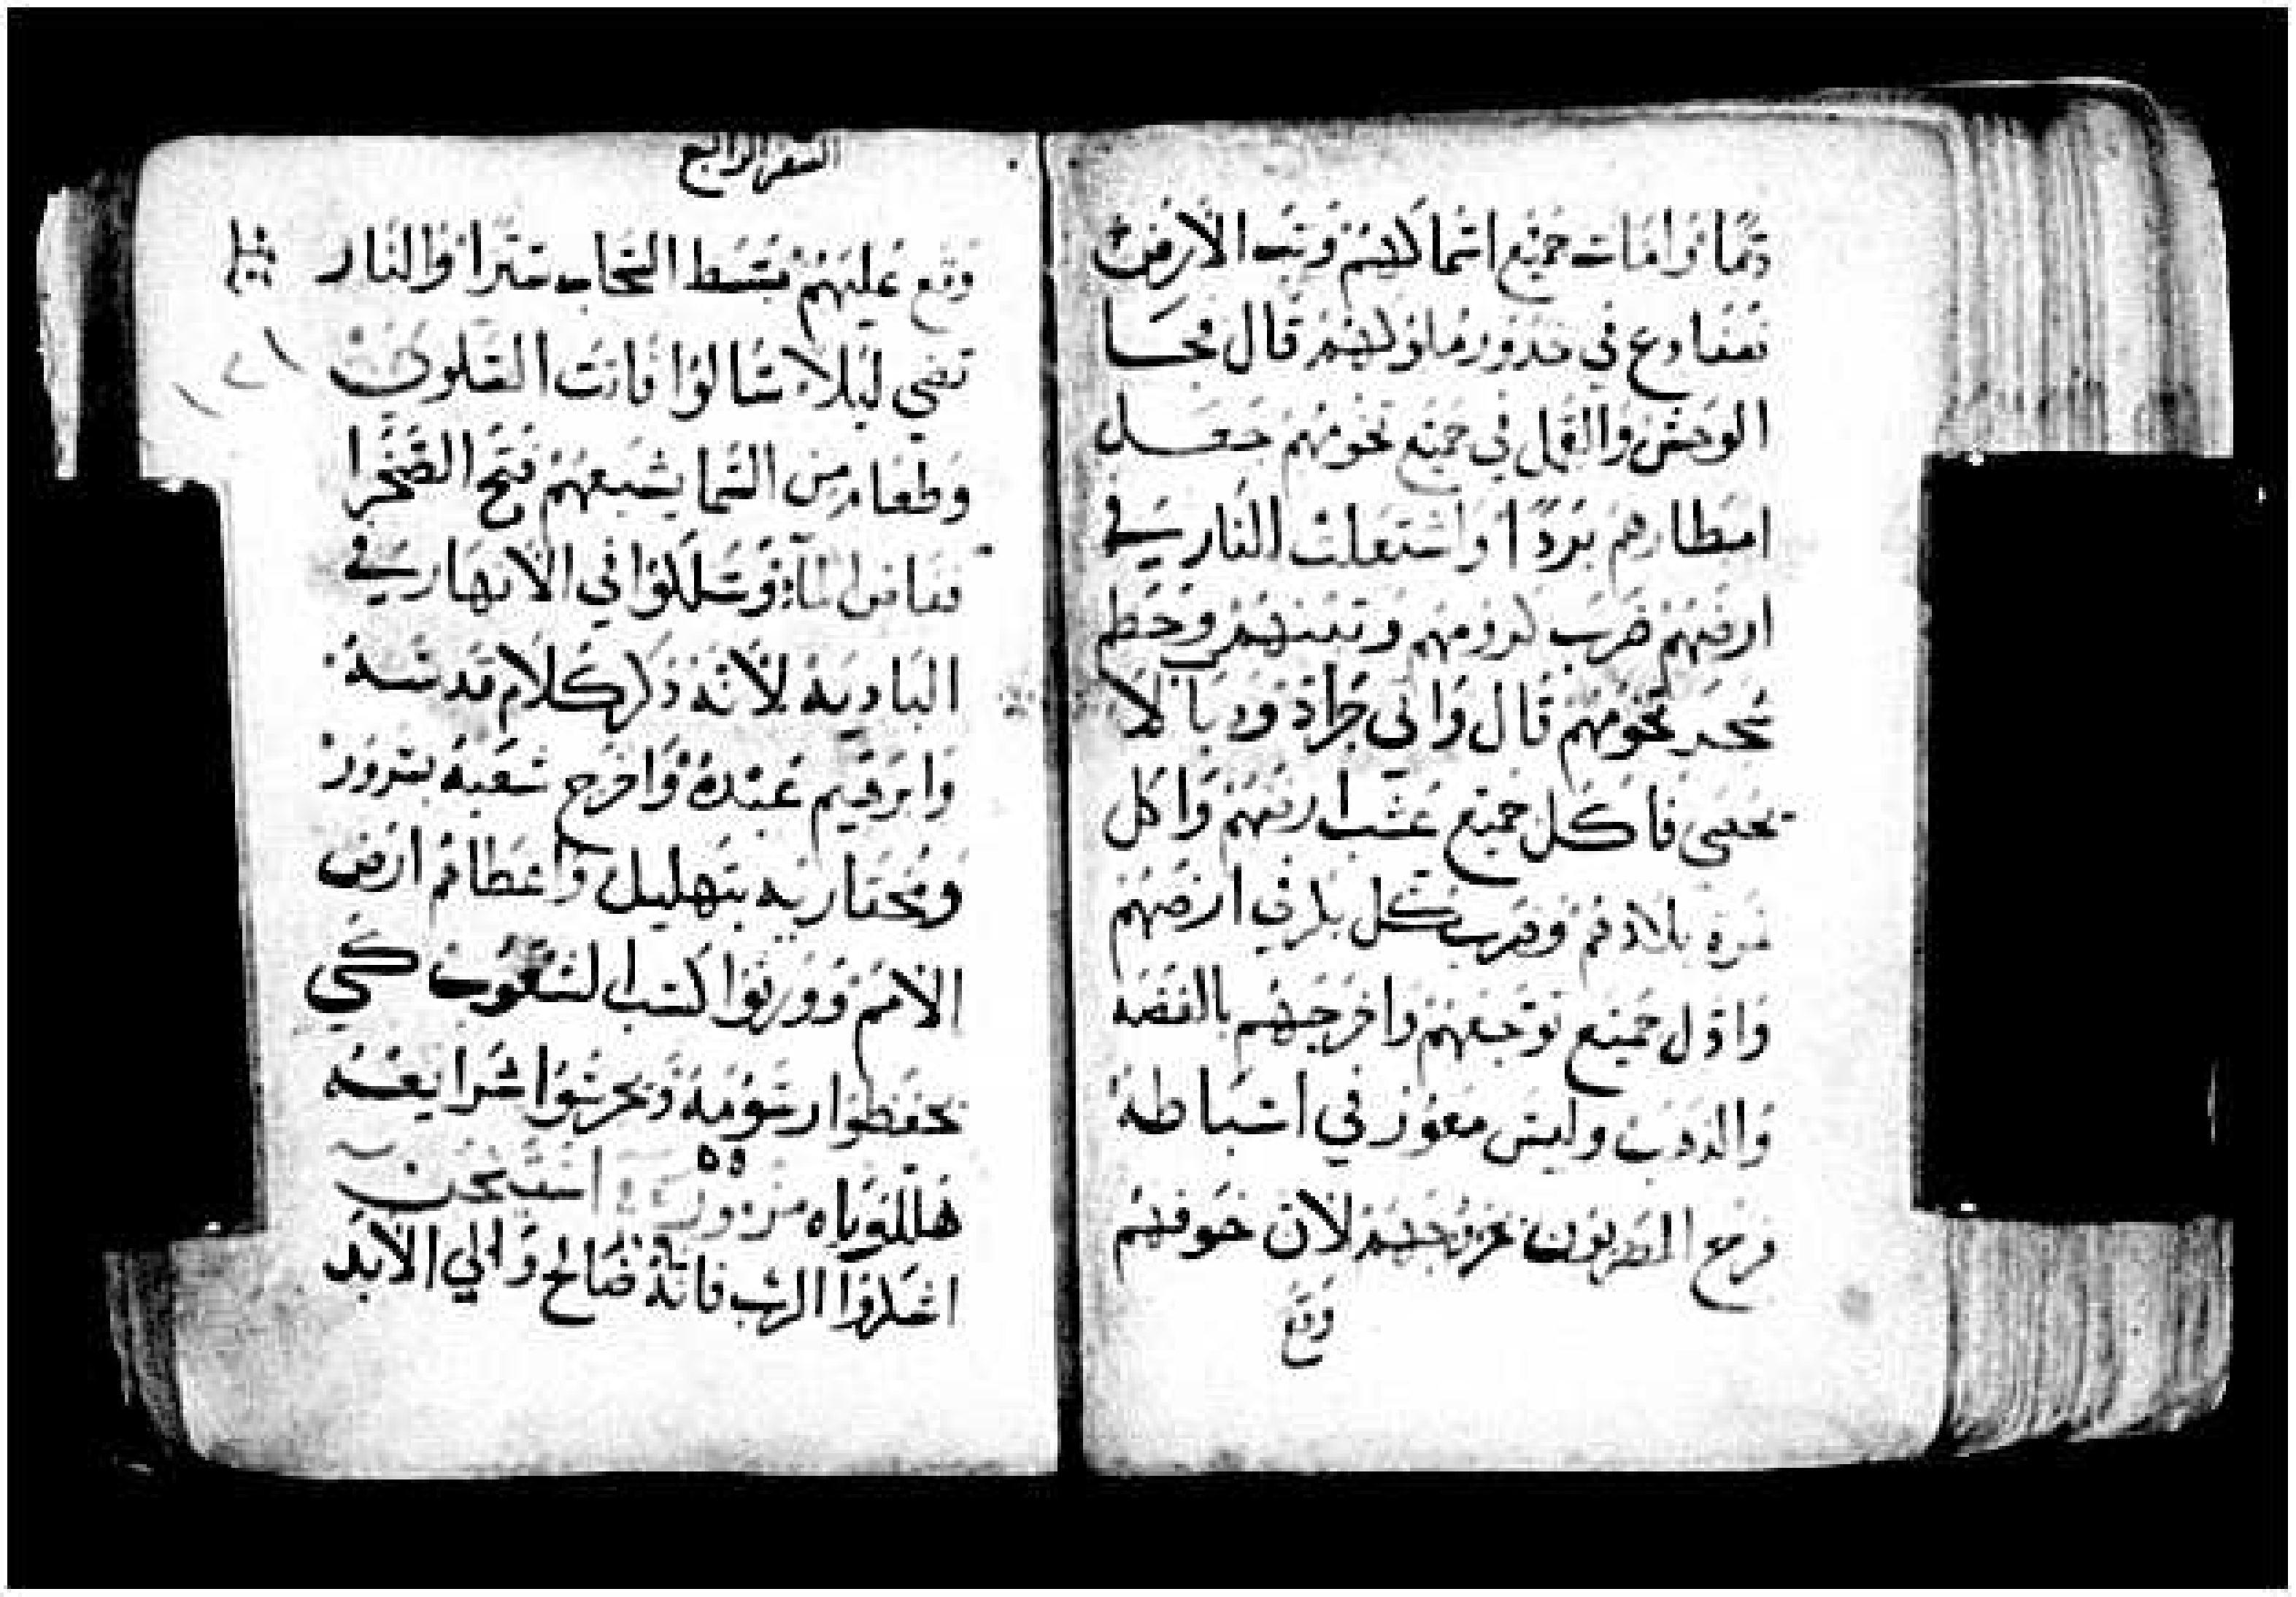 دمًا وامات جميع اسماكهم ونبت الارض
ضفادع في خدور ملوكهم قال فجا
الوحش والقمل في جميع تخومهم جعل
امطارهم بردًا واشتعلت النار في
ارضهم ضرب كرومهم وتينهم وحطم
شجر تخومهم قال واتي جراد ودبا لا
يحصى فاكل جميع عشب ارضهم واكل
ثمرة بلادهم وضرب كل بكر في ارضهم
واول جميع توجعهم واخرجهم بالفضه
والذهب وليس معوز في اسباطه
فرح المصريون بخروجهم لان خوفهم
وقع
السفر الرابع
وقع عليهم بسط السحاب سترا والنار
تضي ليلا سالوا فاتت السلوى
وطعام من السما يشبعهم فتح الصخرا
ففاض الماء وسلكوا في الانهار في
البادية لانه ذكر كلام قدسه
وابرهيم عبده واخرج شعبه بسرور
ومختاريه بتهليل واعطاهم ارض
الامم وورثوا كتب الشعوب كي
يحفظوا رسومه ويحرسوا شرايعه
هللوياه مزمور
اشكروا الرب فانه صالح والي الابد